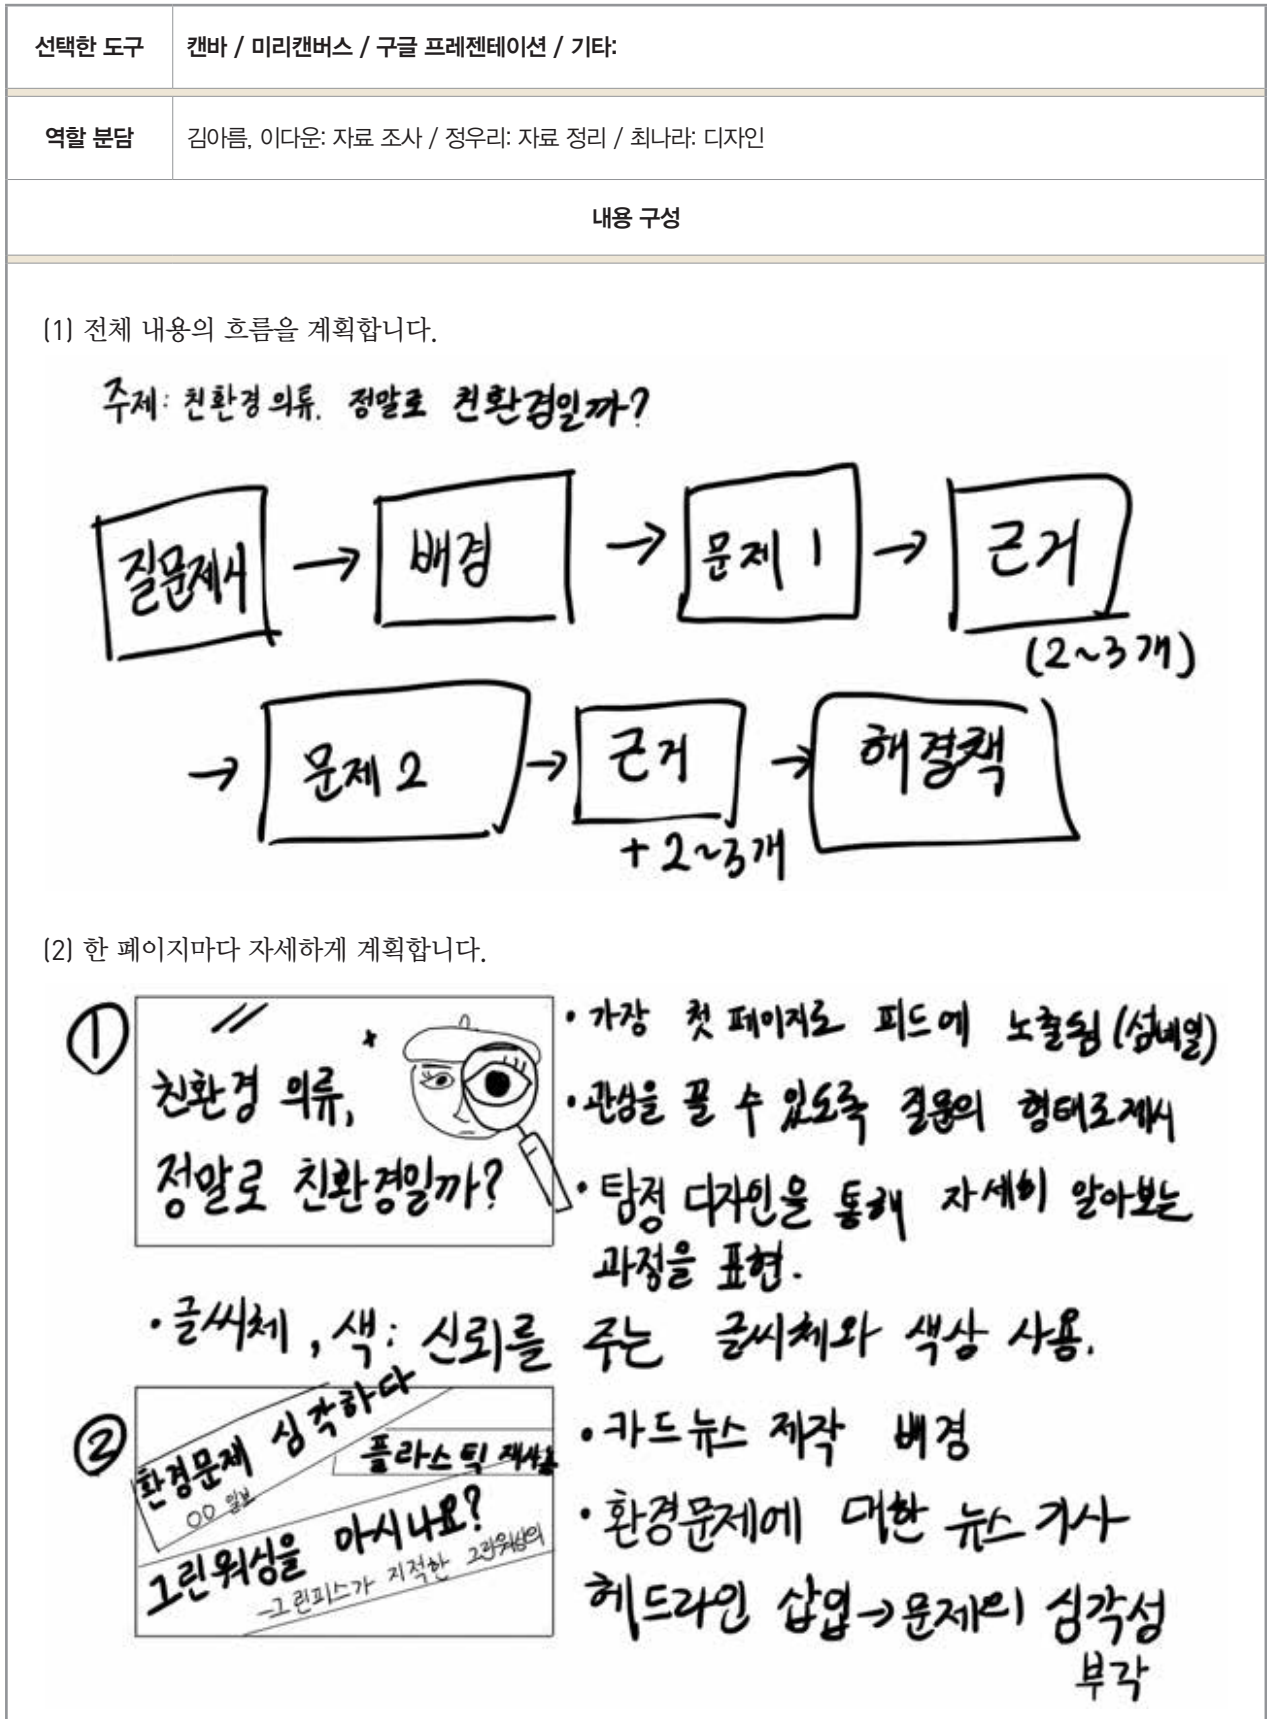 선택한 도구 캔바 / 미리캔버스 / 구글 프레젠테이션 / 기타:
역할 분담 김아름, 이다운: 자료 조사 / 정우리: 자료 정리 / 최나라: 디자인
내용 구성
(1) 전체 내용의 흐름을 계획합니다.
주제: 친환경 의류. 정말로 친환경일까?
질문제시 → 배경 → 문제 1 → 근거
(2~3개)
→ 문제 2 → 근거 → 해결책
+ 2~3개
(2) 한 페이지마다 자세하게 계획합니다.
①
친환경 의류,
정말로 친환경일까?
• 가장 첫 페이지로 피드에 노출됨 (섬네일)
• 관심을 끌 수 있도록 질문의 형태로 제시
• 탐정 디자인을 통해 자세히 알아보는
과정을 표현.
• 글씨체, 색: 신뢰를 주는 글씨체와 색상 사용.
②
환경문제 심각하다
○○ 일보
플라스틱 재사용
그린워싱을 아시나요?
-그린피스가 지적한 그린워싱의
• 카드뉴스 제작 배경
• 환경문제에 대한 뉴스 기사
헤드라인 삽입→문제의 심각성
부각